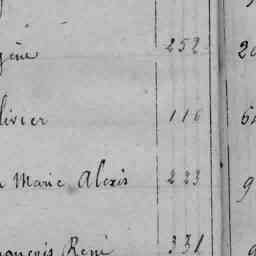 gène 252 2
livier 116 6
Marie Alexis 233 9
ançois René 331 9